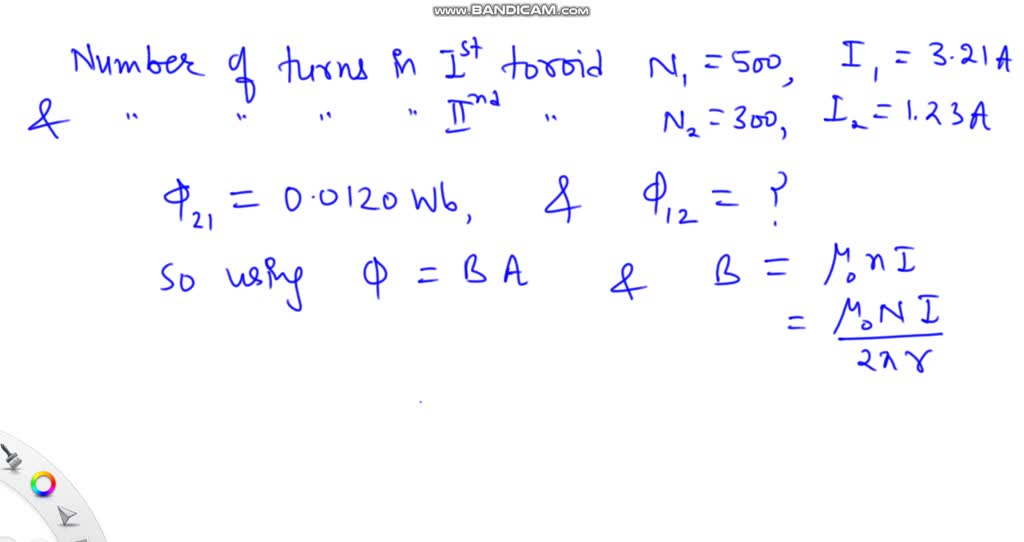 www.BANDICAM.com
Number of turns in Ist toroid N₁ = 500, I₁ = 3.21A
& " " " " IInd " N₂ = 300, I₂ = 1.23A
Φ₂₁ = 0.0120 Wb, & Φ₁₂ = ?
So using Φ = BA & B = μ₀nI
= μ₀NI / 2πr